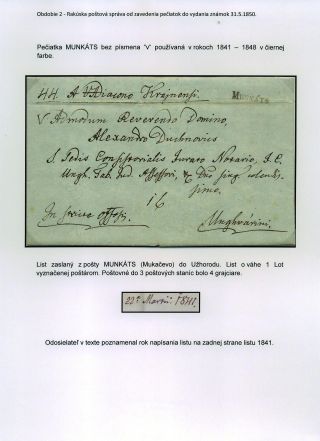 Obdobie 2 - Rakúska poštová správa od zavedenia pečiatok do vydania známok 31.5.1850.
Pečiatka MUNKÁTS bez písmena "V" používaná v rokoch 1841 – 1848 v čiernej
farbe.
A V. Diacono Krajnensi.
MUNKÁTS
Admodum Reverendo Domino,
Alexandro Duchnovics
Sedis Consistorialis Jurato Notario, I. C.
Ungh. Tab. Jud. Assessori, & Dno
simo.
16
Unghvarini.
List zaslaný z pošty MUNKÁTS (Mukačevo) do Užhorodu. List o váhe 1 Lot
vyznačenej poštárom. Poštovné do 3 poštových staníc bolo 4 grajciare.
22ª Martii 1841.
Odosielateľ v texte poznamenal rok napísania listu na zadnej strane listu 1841.